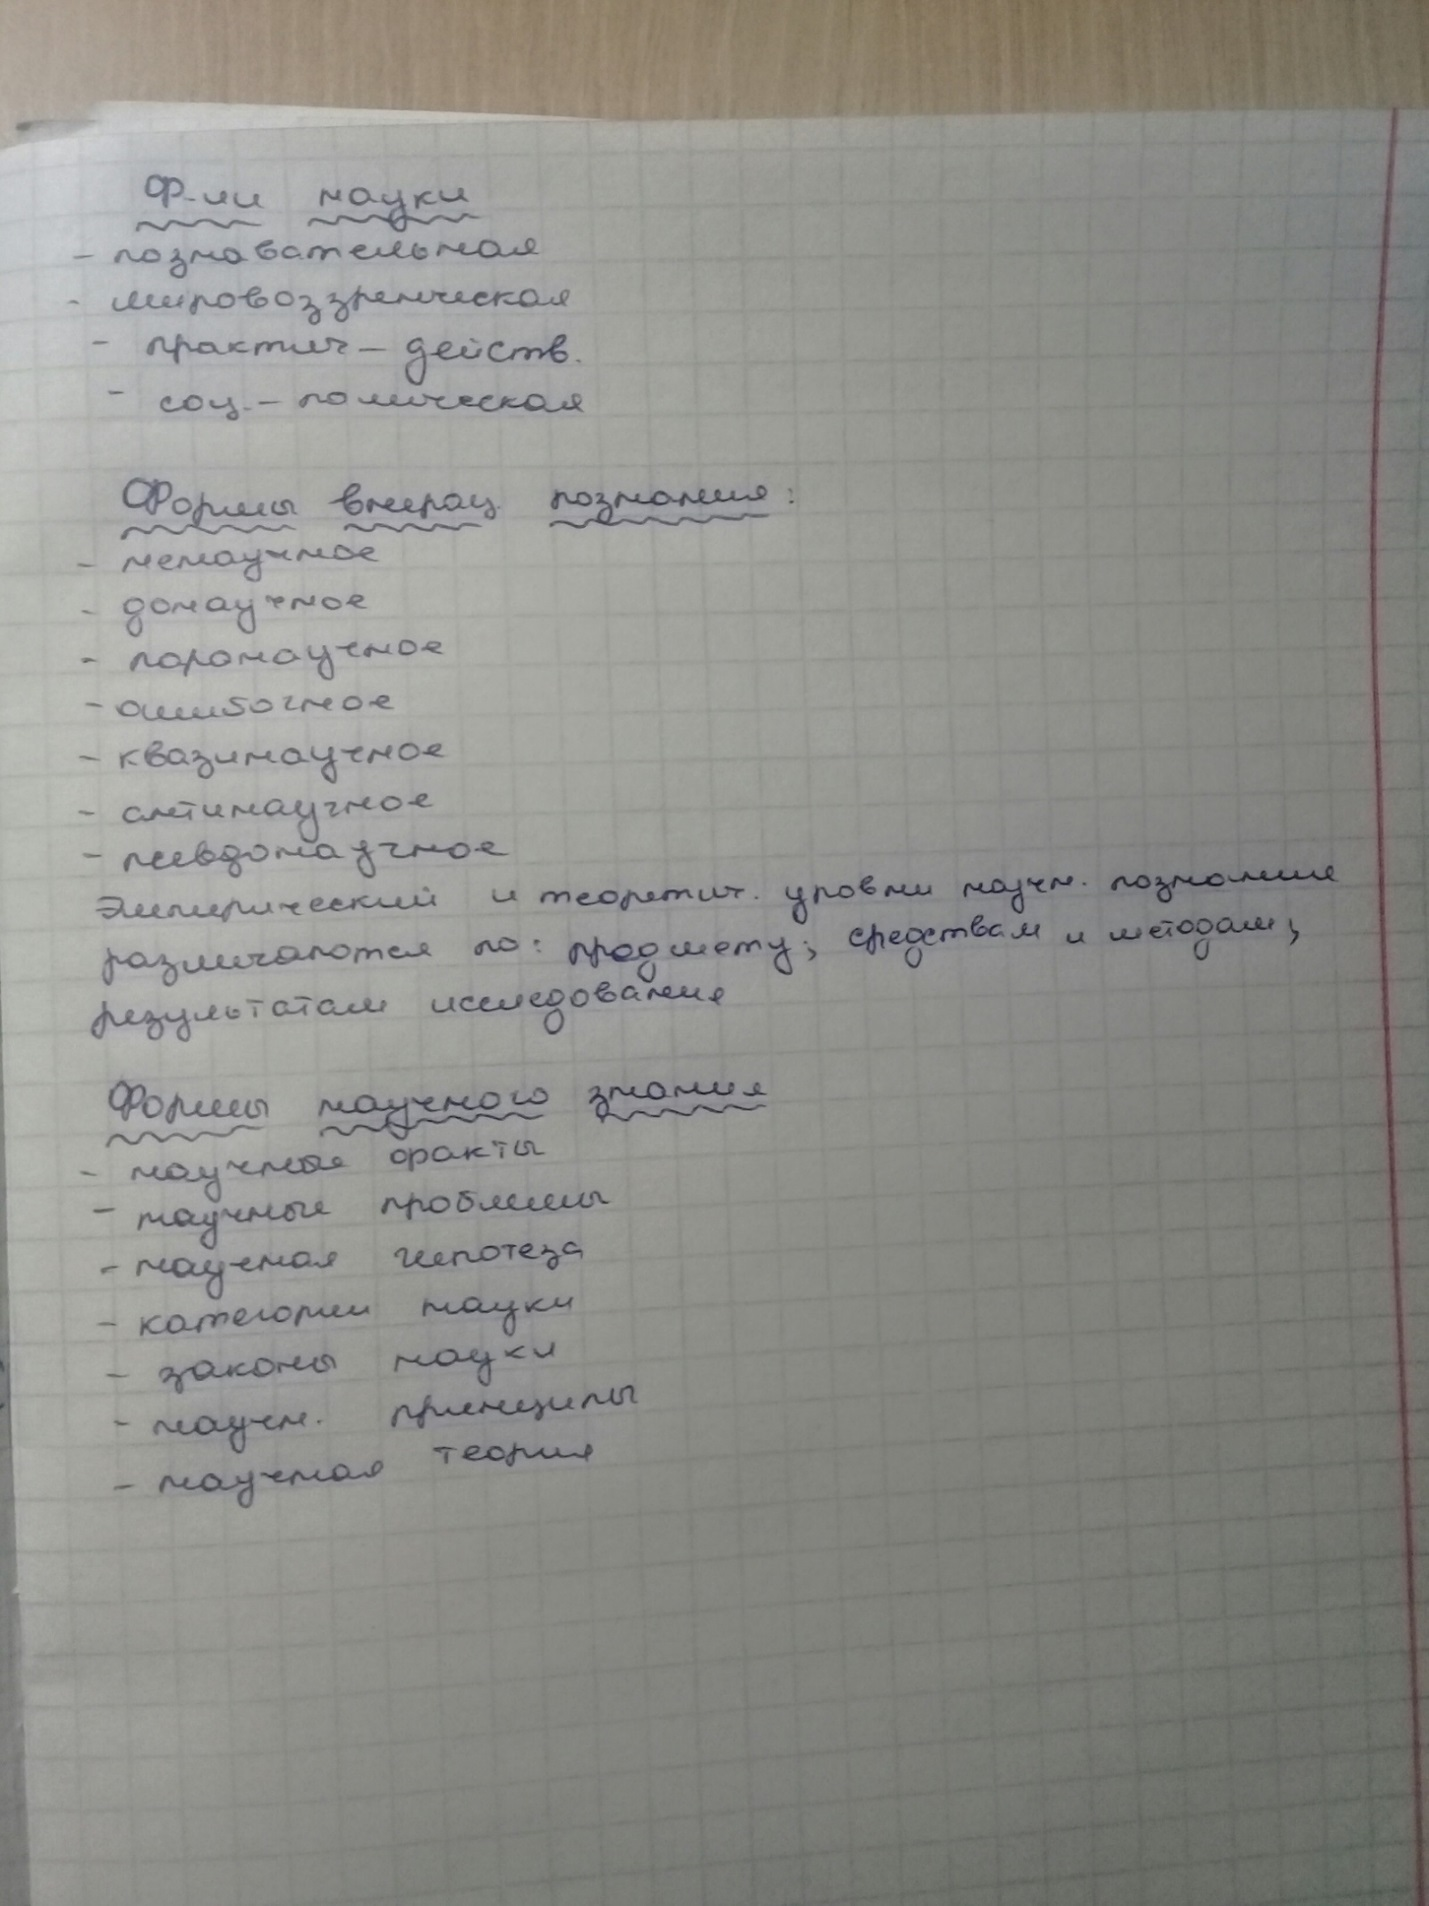 Ф-ии науки
- познавательная
- мировоззренческая
- практич - действ.
- соц. - политическая
Формы внерац. познания:
- ненаучное
- донаучное
- паранаучное
- ошибочное
- квазинаучное
- антинаучное
- псевдонаучное
Эмпирический и теоретич. уровни научн. познание
различаются по: предмету; средствам и методам;
результатам исследования
Формы научного знания
- научные факты
- научные проблемы
- научная гипотеза
- категории науки
- законы науки
- научн. принципы
- научная теория